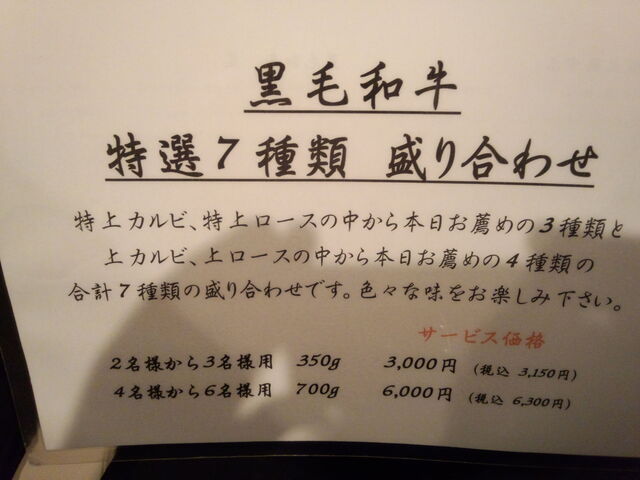 黒毛和牛
特選7種類 盛り合わせ
特上カルビ、特上ロースの中から本日お薦めの3種類と
上カルビ、上ロースの中から本日お薦めの4種類の
合計7種類の盛り合わせです。色々な味をお楽しみ下さい。
サービス価格
2名様から3名様用 350g 3,000円 (税込 3,150円)
4名様から6名様用 700g 6,000円 (税込 6,300円)